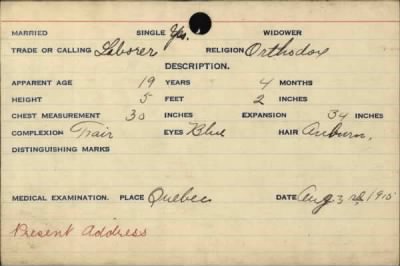 MARRIED SINGLE Yes. WIDOWER
TRADE OR CALLING Laborer RELIGION Orthodox
DESCRIPTION.
APPARENT AGE 19 YEARS 4 MONTHS
HEIGHT 5 FEET 2 INCHES
CHEST MEASUREMENT 30 INCHES EXPANSION 34 INCHES
COMPLEXION Fair EYES Blue HAIR Auburn.
DISTINGUISHING MARKS
MEDICAL EXAMINATION. PLACE Quebec DATE Aug 3rd, 1915
Present Address